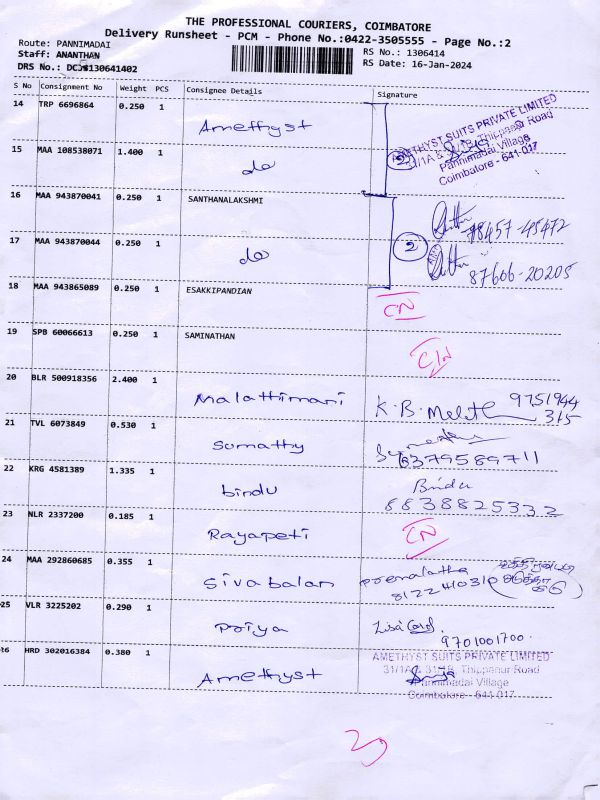 THE PROFESSIONAL COURIERS, COIMBATORE
Delivery Runsheet - PCM - Phone No.:0422-3505555 - Page No.:2
Route: PANNIMADAI
RS No.: 1306414
Staff: ANANTHAN
RS Date: 16-Jan-2024
DRS No.: 130641402
S No Consignment No Weight PCS Consignee Details Signature
14 TRP 6696864 0.250 1 Amethyst
AMETHYST SUITS PRIVATE LIMITED
31/1A & 31/1B, Thippanur Road
Pannimadai Village
Coimbatore - 641 017
15 MAA 108538071 1.400 1 do 2
16 MAA 943870041 0.250 1 SANTHANALAKSHMI 78457-45472
17 MAA 943870044 0.250 1 do 2 87606-20205
18 MAA 943865089 0.250 1 ESAKKIPANDIAN CN
19 SPB 60066613 0.250 1 SAMINATHAN C/N
20 BLR 500918356 2.400 1 Malattimani K.B. 9751944
315
21 TVL 6073849 0.530 1 Sumathy 6379589711
22 KRG 4581389 1.335 1 bindu Bindu
8838825332
23 NLR 2337200 0.185 1 Rayapeti CN
24 MAA 292860685 0.355 1 Sivabalan Premalatha
8122410310
25 VLR 3225202 0.290 1 Priya Lisa
9701001700.
26 HRD 302016384 0.380 1 Amethyst
AMETHYST SUITS PRIVATE LIMITED
31/1A & 31/1B, Thippanur Road
Pannimadai Village
Coimbatore - 641 017